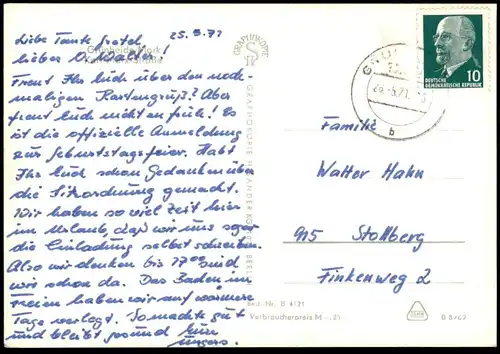 25.5.71
Liebe Tante Gretel
lieber Onkel Walter!
Grünheide Mark
Freut Ihr Euch über den noch-
maligen Kartengruß? Aber
freut Euch nicht zu früh! Es
ist die offizielle Anmeldung
zur Geburtstagsfeier. Habt
Ihr Euch schon Gedanken über
die Sitzordnung gemacht.
Wir haben so viel Zeit hier
im Urlaub, daß wir uns sogar
die Einladung selbst schreiben.
Also wir denken bis 17 00 sind
wir schon da. Das Baden im
Freien haben wir auf wärmere
Tage verlegt. So macht's gut
und bleibt gesund Eure
GRAPHOKOPIE
GRAPHOKOPIE H. SANDER KG BERLIN
Best. Nr. B 4121
Verbraucherpreis M -,25
B 8/69
DEUTSCHE
DEMOKRATISCHE REPUBLIK
10
b
Familie
Walter Hahn
915 Stollberg
Finkenweg 2